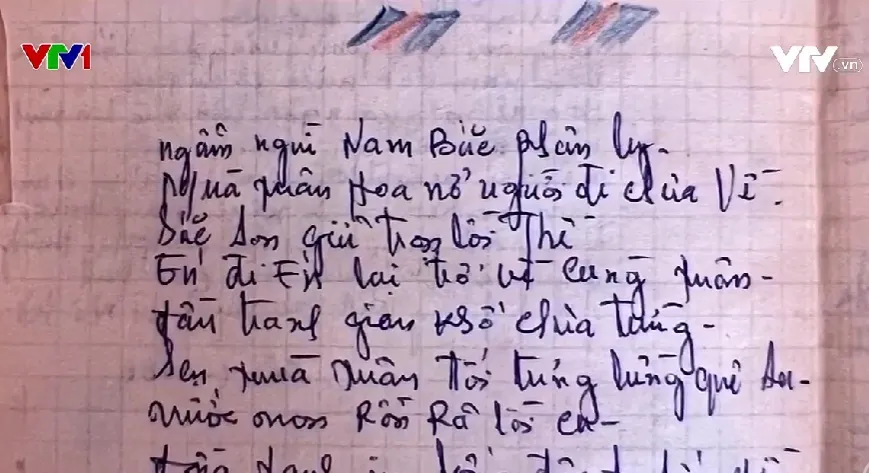 VTV1
VTV.vn
ngậm ngùi Nam Bắc phân ly-
Mùa xuân Hoa nở người đi chưa Về.
Sắc Son giữ trọn lời Thề
Én đi Én lại trở về cùng xuân-
gian khổ chưa từng-
xuân Tới tưng bừng quê
nước non Rộn Rã lời ca-